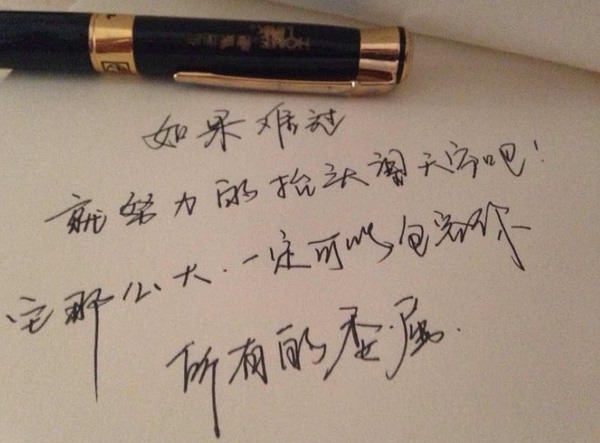 如果难过
就努力的抬头望天空吧!
它那么大.一定可以包容你
所有的委屈.